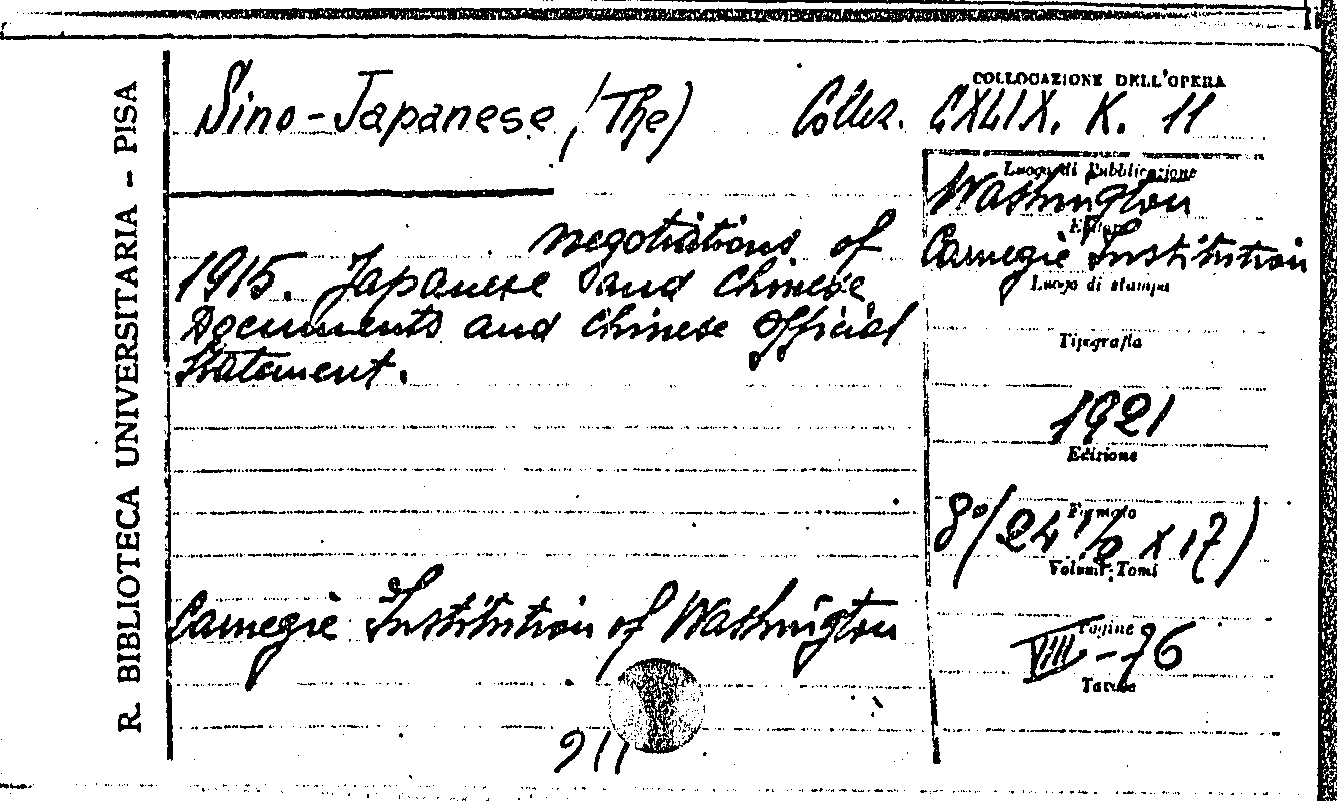 R. BIBLIOTECA UNIVERSITARIA - PISA
Sino-Japanese (The)
negotiations of
1915. Japanese and Chinese
Documents and Chinese Official
Statement.
Carnegie Institution of Washington
911
COLLOCAZIONE DELL'OPERA
Collez. CXLIX. K. 11
Luogo di Pubblicazione
Washington
Editore
Carnegie Institution
Luogo di stampa
Tipografia
1921
Edizione
Formato
8°(24 1/2 x 17)
Volumi: Tomi
Pagine
VIII-76
Tavole